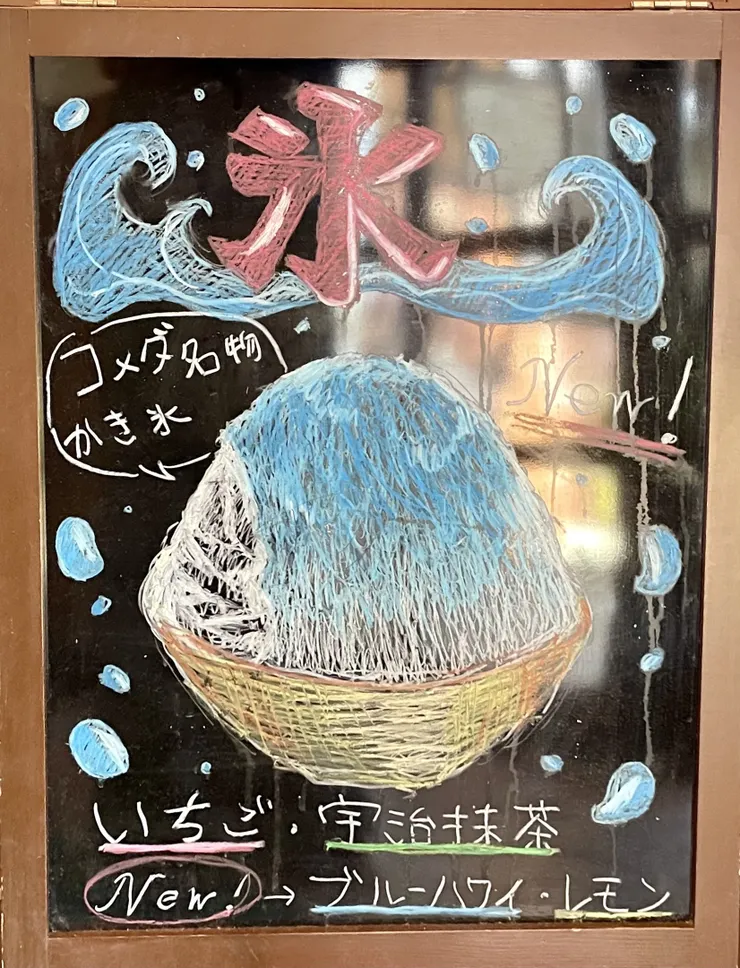 氷
コメダ名物
かき氷
New!
いちご・宇治抹茶
New!→ブルーハワイ・レモン